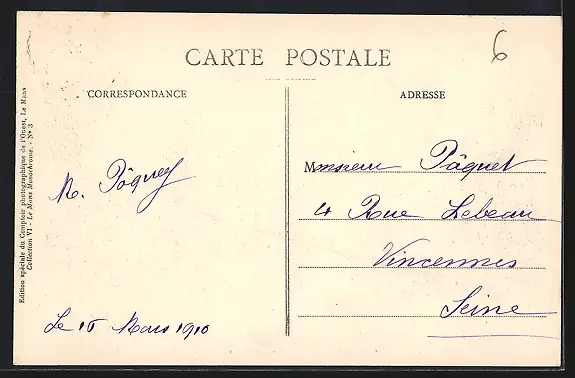 CARTE POSTALE
6
CORRESPONDANCE
ADRESSE
Edition spéciale du Comptoir photographique de l'Ouest, Le Mans
Collection VI - Le Mans Monochrome. - N° 3
Monsieur Pâquet
4 Rue Lebeau
Vincennes
Seine
Le 15 Mars 1910